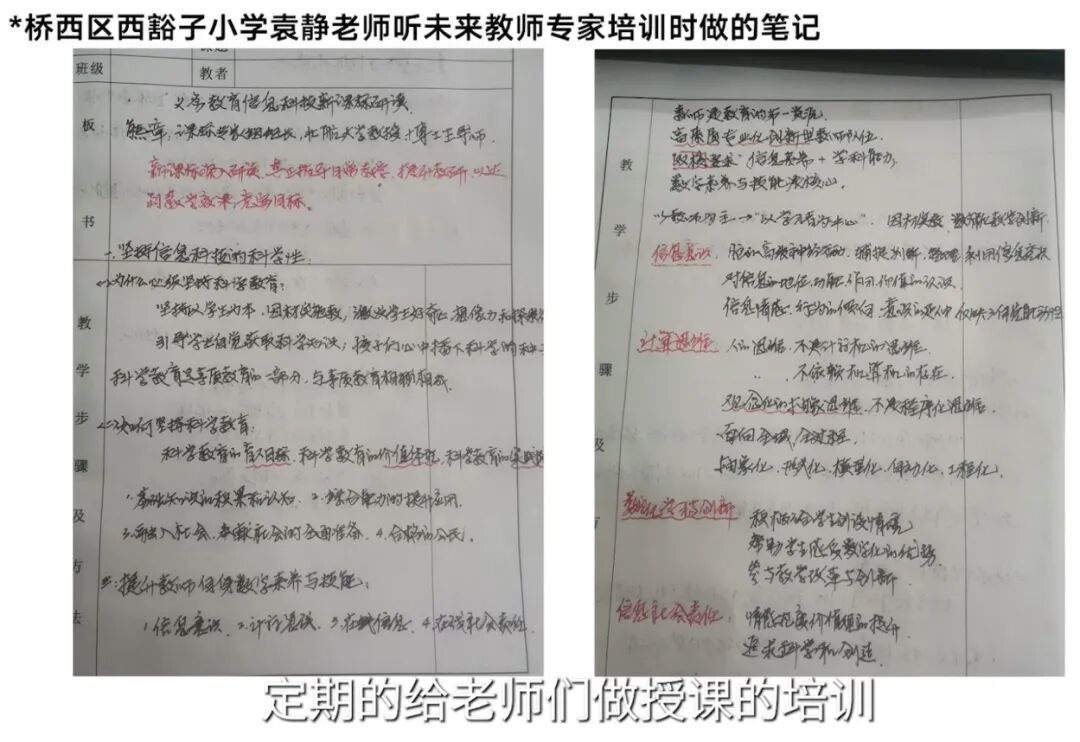 *桥西区西豁子小学袁静老师听未来教师专家培训时做的笔记
班级
教者
板
书
教
学
步
骤
及
方
法
义务教育信息科技新课标研读
熊璋:课标专家组组长,北航大学教授、博士生导师
新课标深入研读,真正指导日常教学,提升教研,以达
到教学效果,完成目标。
一、坚持信息科技的科学性:
<1>为什么必须坚持科学教育:
坚持以学生为本,因材施教,激发学生好奇、想像力和探索
引导学生自觉获取科学知识;孩子们心中播下科学的种
科学教育是素质教育的一部分,与素质教育相辅相成。
<2>如何坚持科学教育:
科学教育的育人目标、科学教育的价值体现、科学教育的
1.基础知识的积累和认知 2.综合能力的提升应用
3.融入社会、奉献社会的全面准备 4.合格的公民。
二:提升教师自身数字素养与技能:
1.信息意识 2.计算 3. 信息 4. 社会责任
教
学
步
骤
及
方
教师是教育的第一资源
高素质专业化创新型教师队伍
信息素养+学科能力
数字素养与技能是核心。
以教师为主→"以学习者为中心" 因材施教 教学创新
信息意识: 脑的高级神经活动 捕捉、判断、整理、利用信息意识
对信息的地位、功能、作用、价值的认识
信息情感、行为的倾向
计算思维 人的思维,不是计算机的思维
不依赖计算机的存在
概念化的抽象思维,不是程序化思维
面向全域、全过程
抽象化、形式化、模型化、自动化、工程化
数字化学习与创新 积极给学生创设情境
帮助学生感受数字化的优势
参与教学改革与创新
信息社会责任 情感态度价值观的提升
追求科学和创造
定期的给老师们做授课的培训